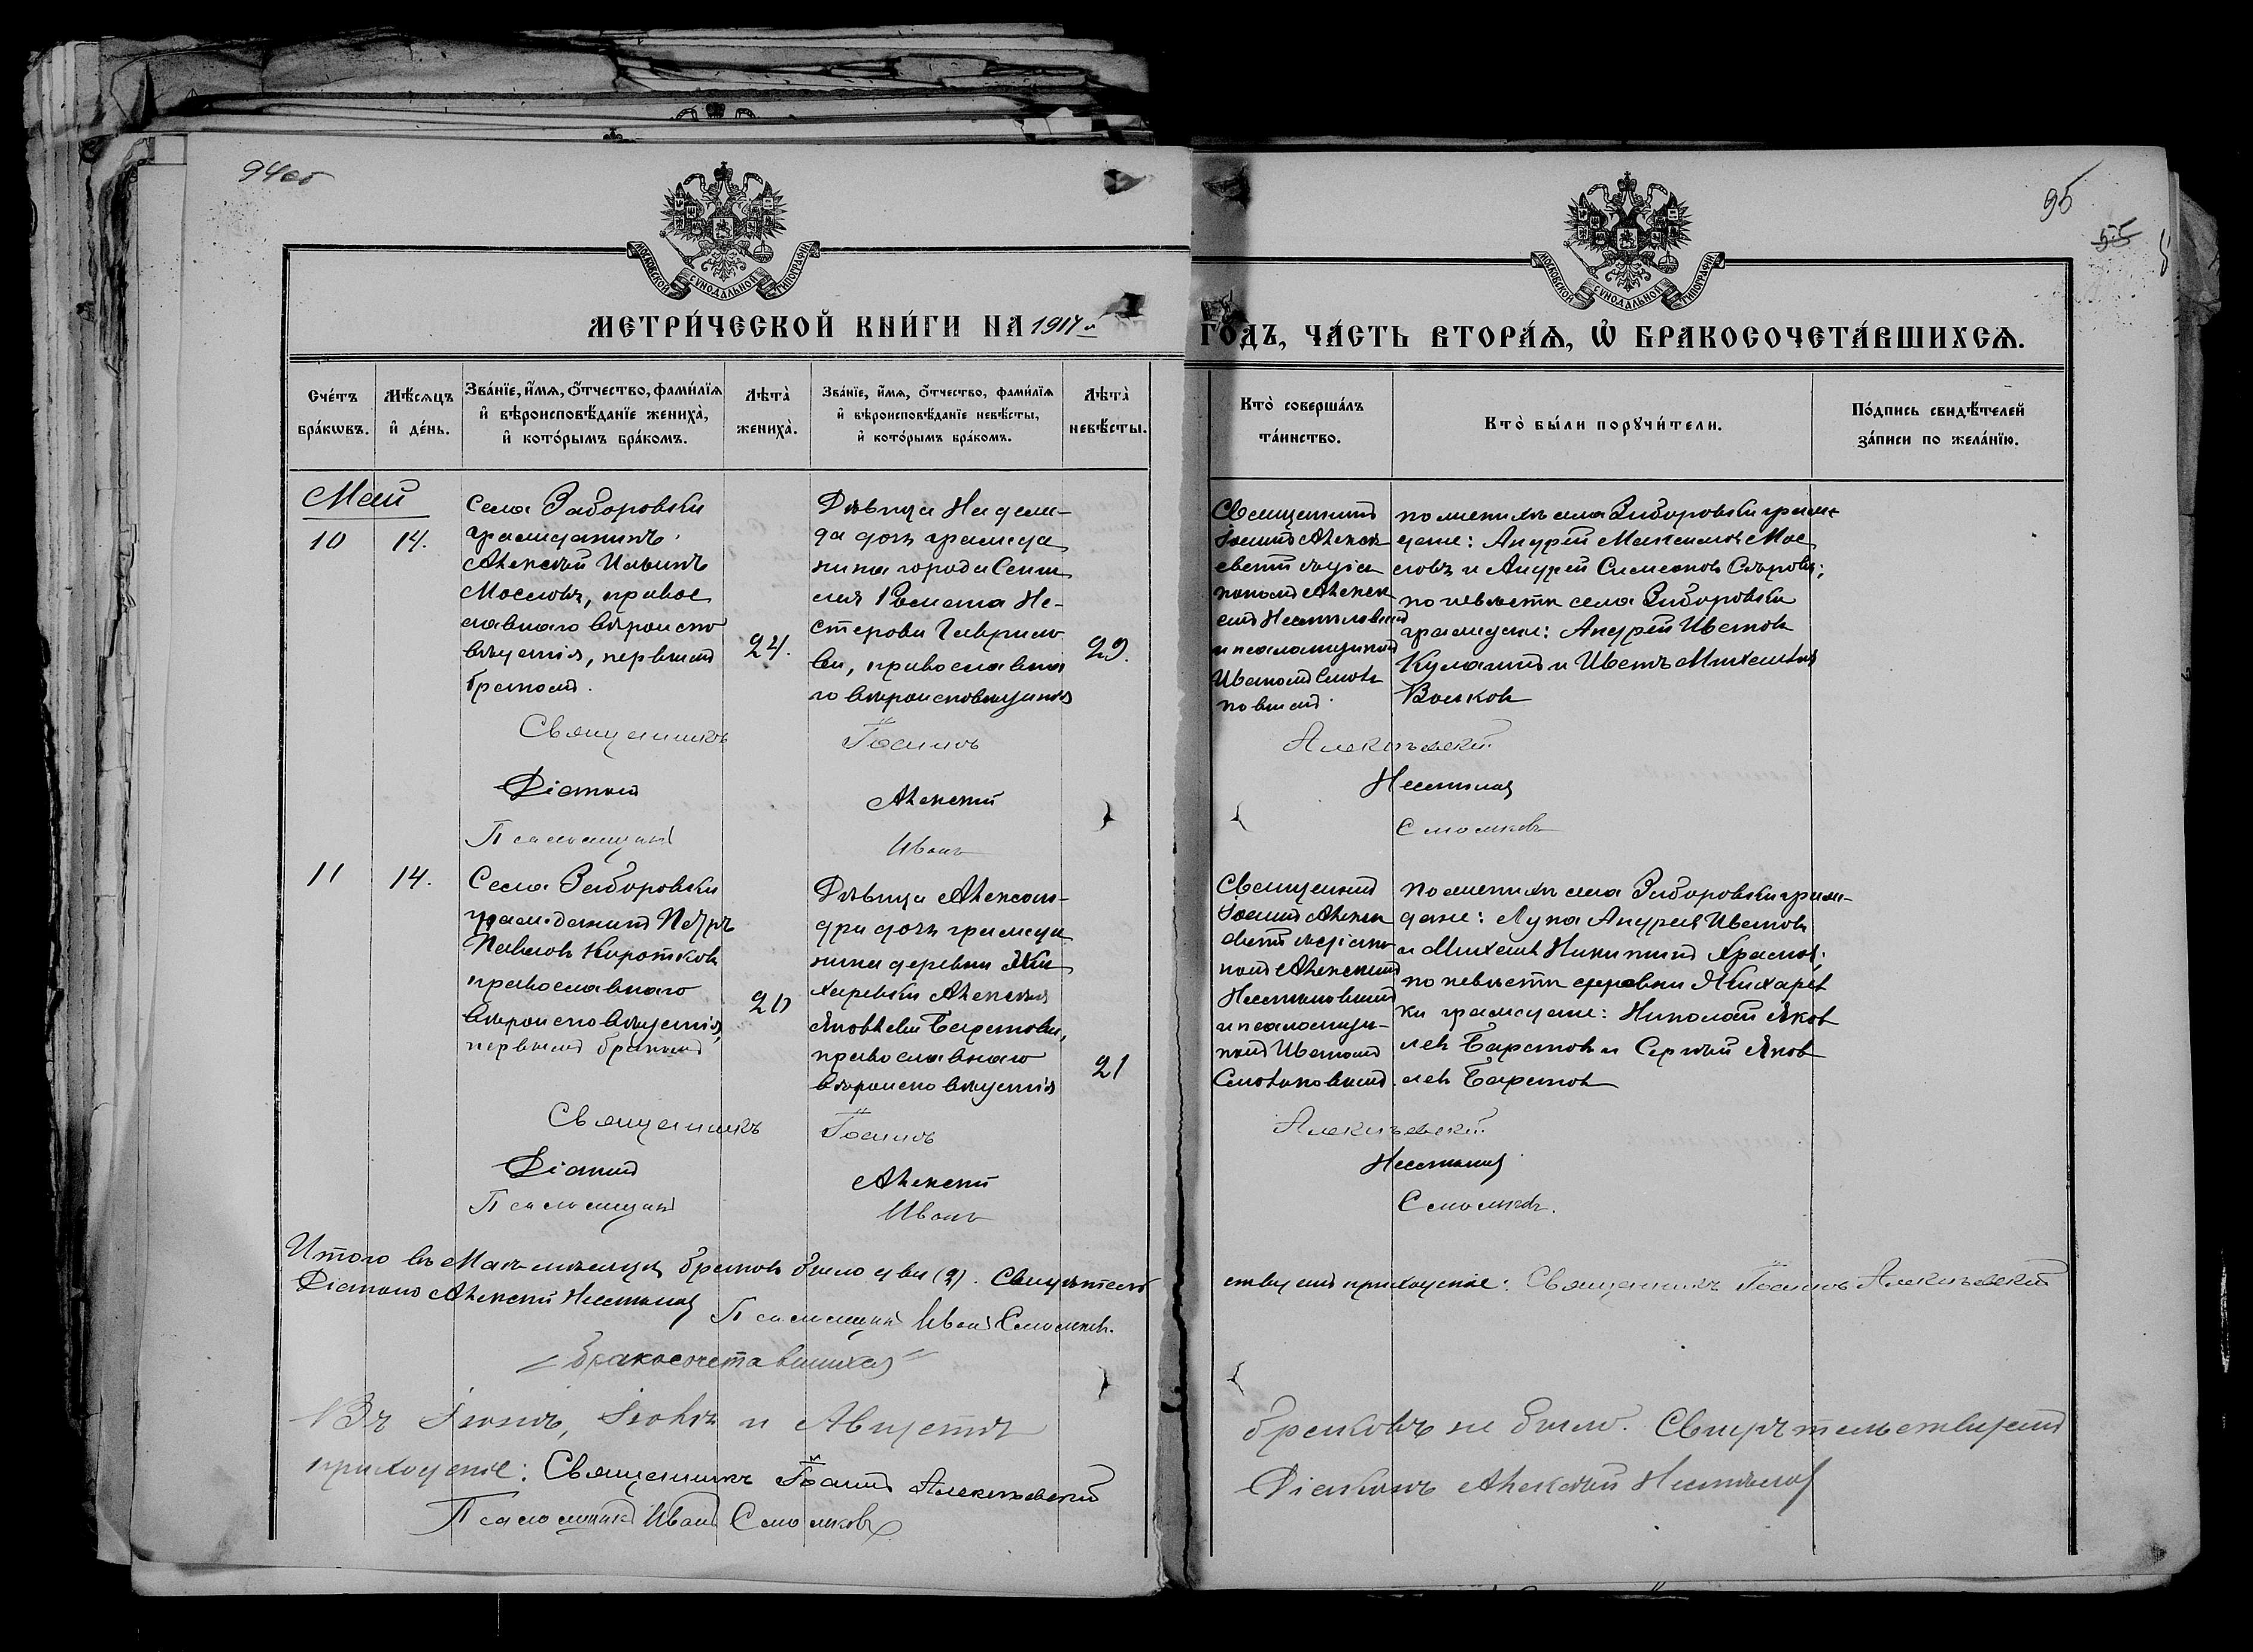 94 об
95
55
МОСКОВСКОЙ СѴНОДАЛЬНОЙ ТИПОГРАФІИ
МОСКОВСКОЙ СѴНОДАЛЬНОЙ ТИПОГРАФІИ
МЕТРИ́ЧЕСКОЙ КНИ́ГИ НА 1917 й
ГО́ДЪ, ЧА́СТЬ ВТОРА́Ѧ, Ѽ БРАКОСОЧЕТА́ВШИХСѦ.
Сче́тъ бра́кѡвъ.
Мѣ́сяцъ и҆ де́нь.
Зва́нїе, и҆́мѧ, ѻ҆́тчество, фами́лїѧ
и҆ вѣроисповѣ́данїе жениха̀,
и҆ кото́рымъ бра́комъ.
Лѣта̀ жениха̀.
Зва́нїе, и҆́мѧ, ѻ҆́тчество, фами́лїѧ
и҆ вѣроисповѣ́данїе невѣ́сты,
и҆ кото́рымъ бра́комъ.
Лѣта̀ невѣ́сты.
Кто̀ соверша́лъ
та́инство.
Кто̀ бы́ли порꙋчи́тели.
По́дпись свидѣ́телей
за́писи по жела́нїю.
Май
10
14.
Села Заборовки
гражданинъ
Алексѣй Ильинъ
Масловъ, правос
лавнаго вѣроиспо
вѣданія, первымъ
бракомъ.
24.
Дѣвица Надеж-
да дочь гражда
нина города Сенги
лея Романа Не-
стерова Гаврило
ва, православна
го вѣроисповѣданія
29.
Священникъ
Іоаннъ Алекс
ѣевскій съ діа
кономъ Алексѣ
емъ Несмѣловымъ
и псаломщикомъ
Иваномъ Смол
ковымъ.
по женихѣ села Заборовки граж
дане: Андрей Максимовъ Мас
ловъ и Андрей Симеоновъ
по невѣстѣ села Заборовки
граждане: Андрей Ивановъ
и Иванъ Михайловъ
Волковъ
Священникъ Іоаннъ Алексѣевскій
Діаконъ Алексѣй Несмѣловъ
Псаломщикъ Иванъ Смолковъ
11
14.
Села Заборовки
гражданинъ Петръ
Павловъ Коротковъ
православнаго
вѣроисповѣданія,
первымъ бракомъ
20
Дѣвица Алексан-
дра дочь гражда
нина деревни Жи
харевки Алексѣя
Яковлева Баранова,
православнаго
вѣроисповѣданія
21
Священникъ
Іоаннъ Алексѣ
евскій съ діако
номъ Алексѣемъ
Несмѣловымъ
и псаломщи-
комъ Иваномъ
Смолковымъ.
По женихѣ села Заборовки граж-
дане: Лука Андреевъ Ивановъ
и Михаилъ Никитинъ
по невѣстѣ деревни Жихарев
ки граждане: Николай Яков
левъ Барановъ и Сергѣй Яков
левъ Барановъ
Священникъ Іоаннъ Алексѣевскій
Діаконъ Алексѣй Несмѣловъ
Псаломщикъ Иванъ Смолковъ.
Итого въ Маѣ мѣсяцѣ браковъ было два (2). Свидѣтель
ствуемъ приходскіе: Священникъ Іоаннъ Алексѣевскій
Діаконъ Алексѣй Несмѣловъ
Псаломщикъ Иванъ Смолковъ.
"бракосочетавшихся"
Въ Іюнѣ, Іюлѣ и Августѣ
браковъ не было. Свидѣтельствуемъ
приходскіе: Священникъ Іоаннъ Алексѣевскій
Діаконъ Алексѣй Несмѣловъ
Псаломщикъ Иванъ Смолковъ